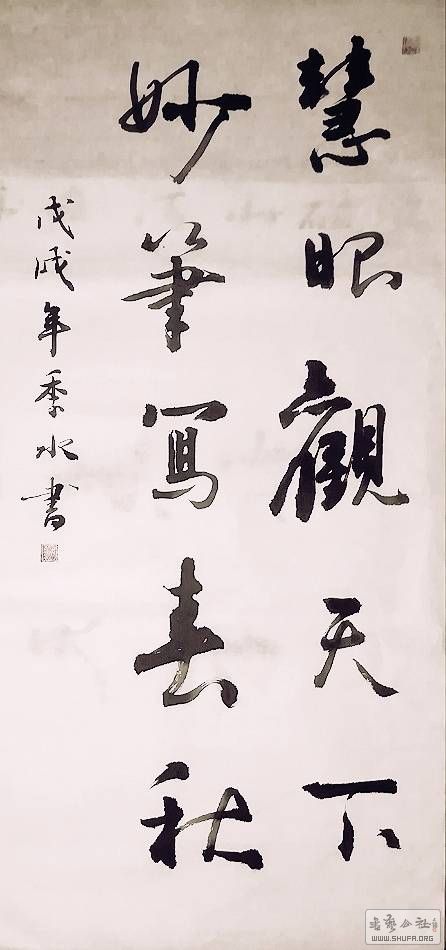 慧眼觀天下
妙筆寫春秋
戊戌年季水書
WWW.SHUFA.ORG